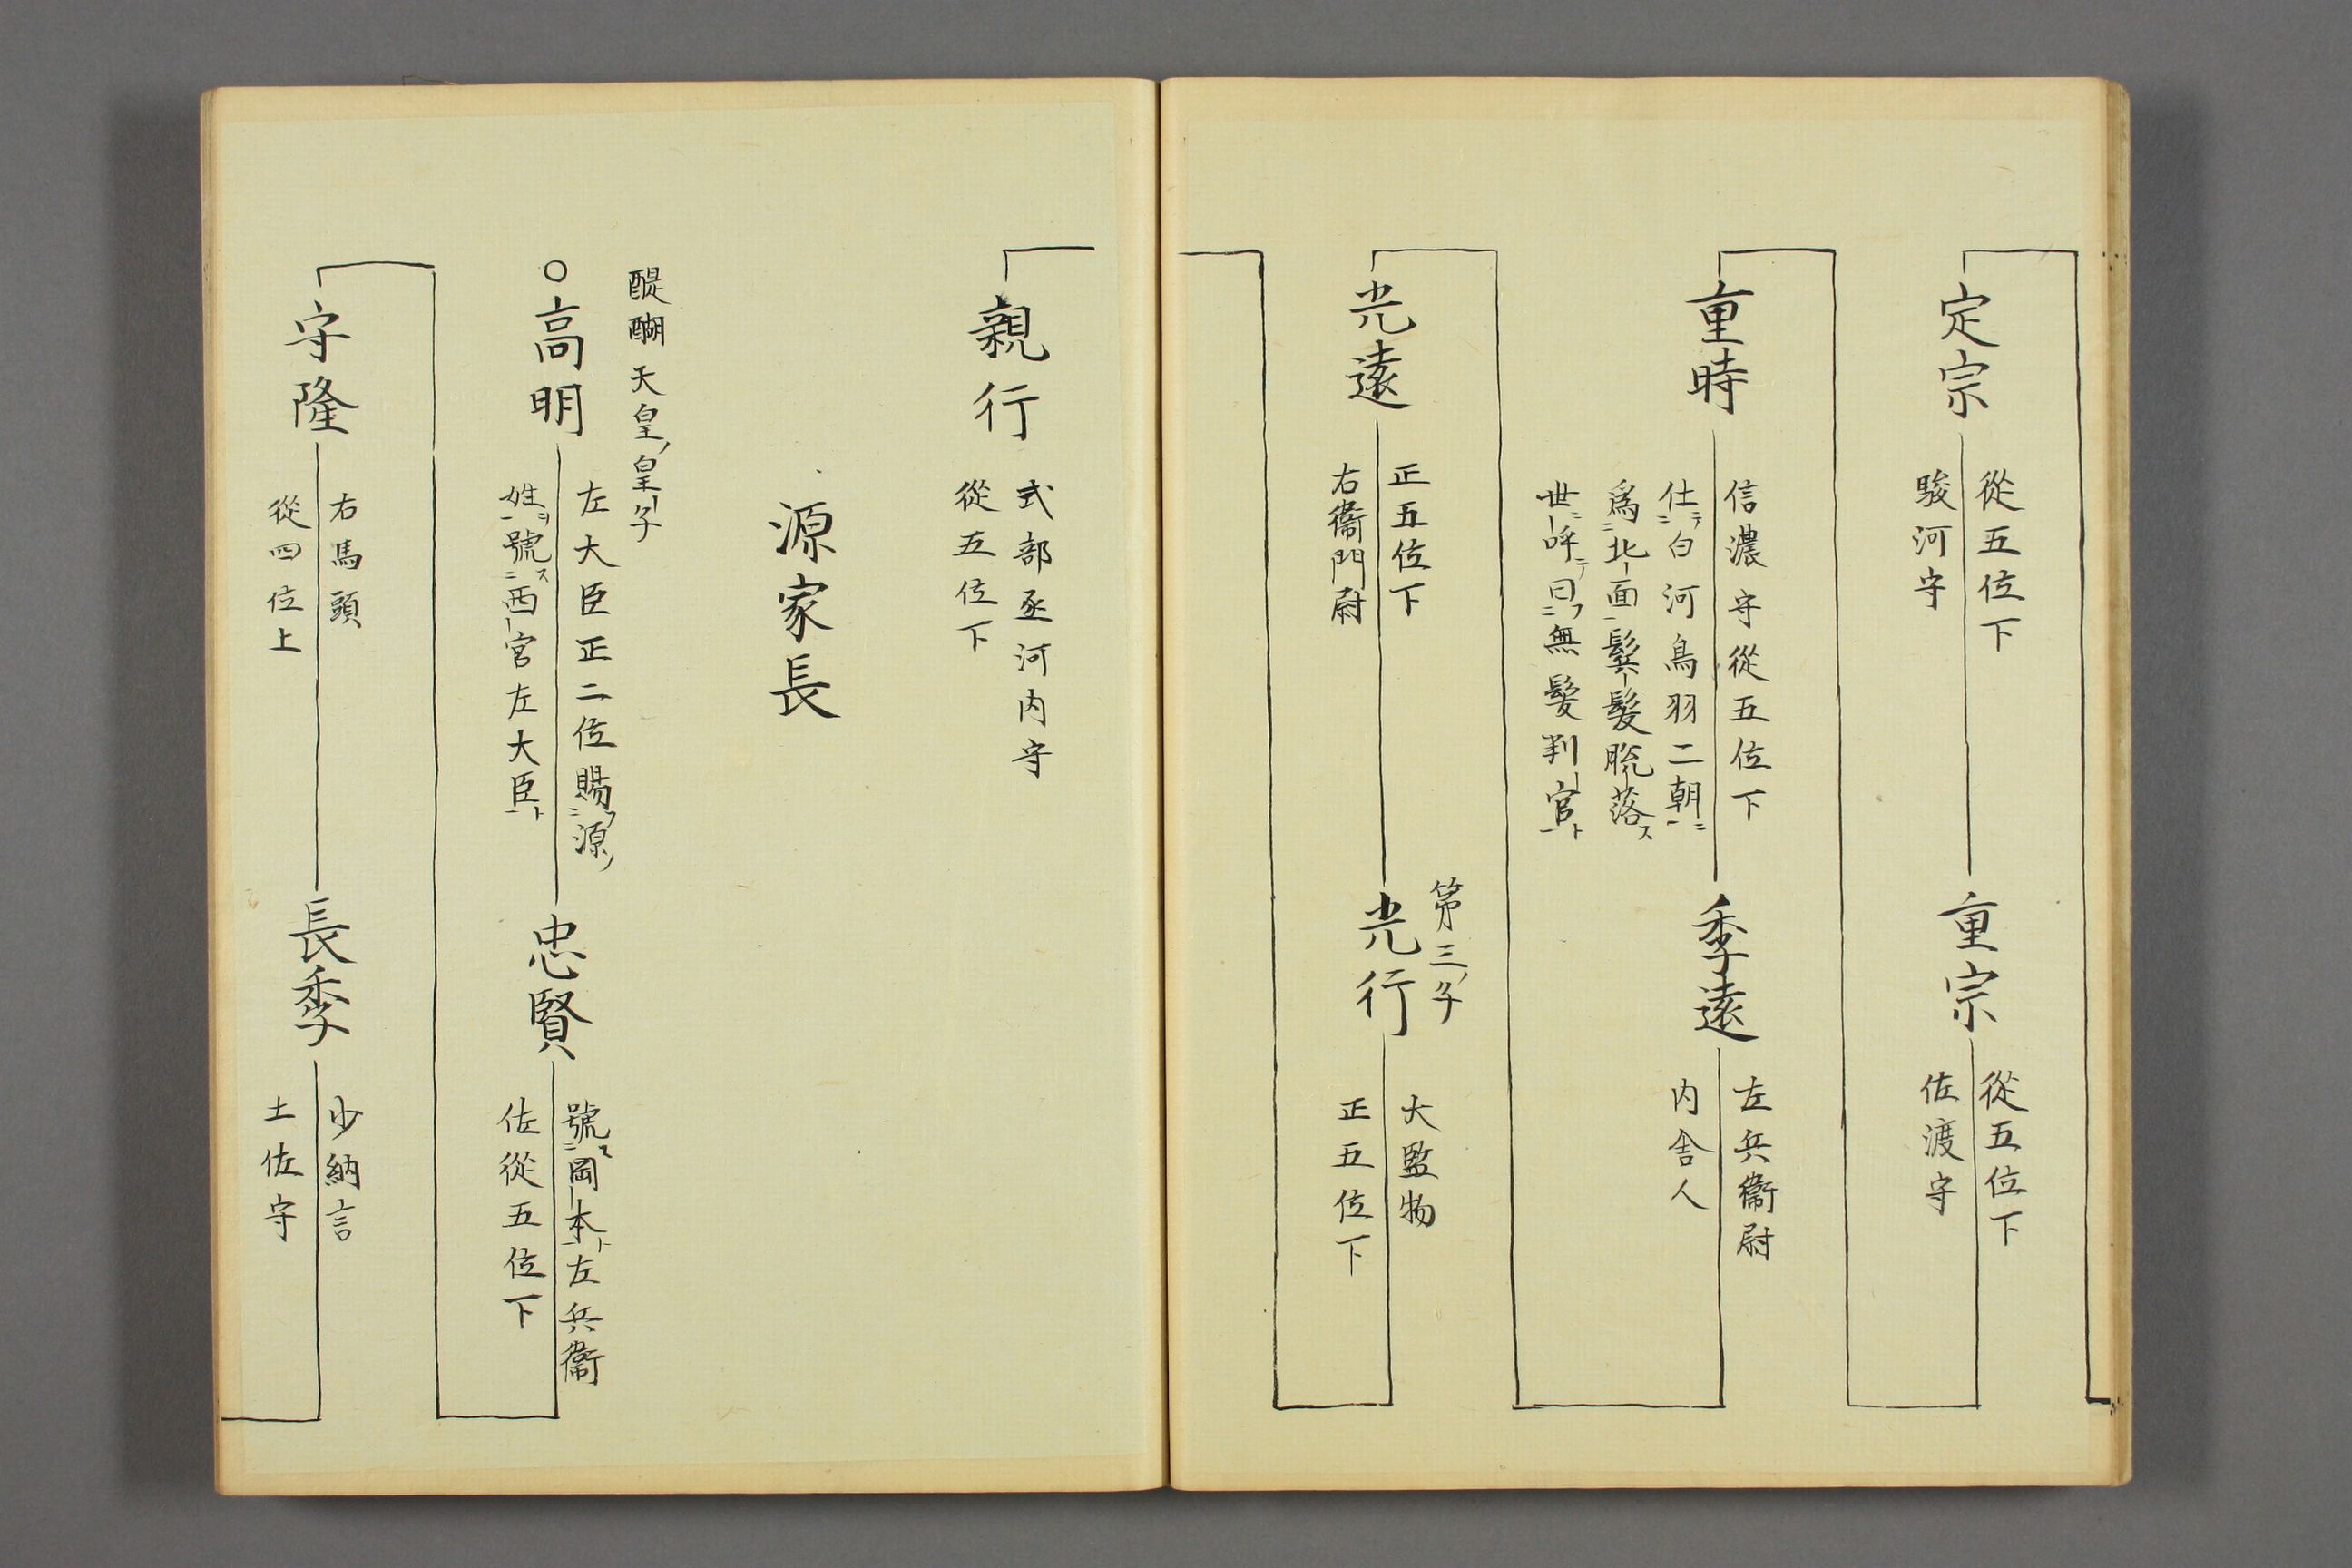 定宗
從五位下
駿河守
重宗
從五位下
佐渡守
重時
信濃守從五位下
仕ニテ白河鳥羽二朝ニ
爲北面鬂髮脫落ス
世呼テ曰フ無髮判官ト
季遠
左兵衞尉
内舎人
光遠
正五位下
右衞門尉
第三ノ子
光行
大監物
正五位下
親行
式部丞河内守
從五位下
源家長
醍醐天皇ノ皇子
○高明
左大臣正二位賜フ源ノ
姓ヲ號ス西宮左大臣ト
忠賢
號ス岡本ト左兵衞
佐從五位下
守隆
右馬頭
從四位上
長季
少納言
土佐守